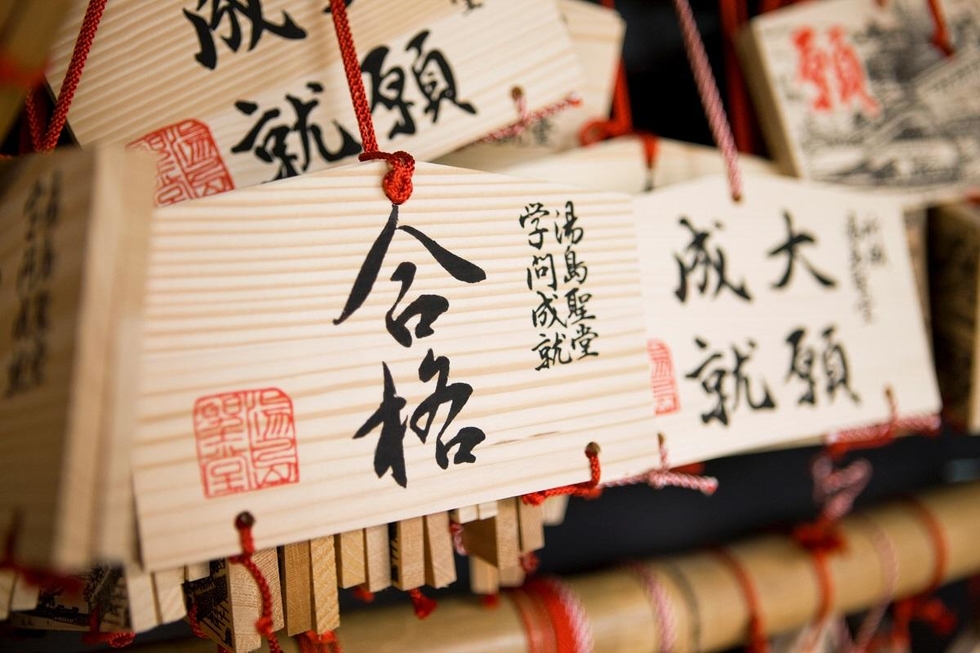 合格
湯島聖堂
学問成就
大願
成就
願
成
就
願